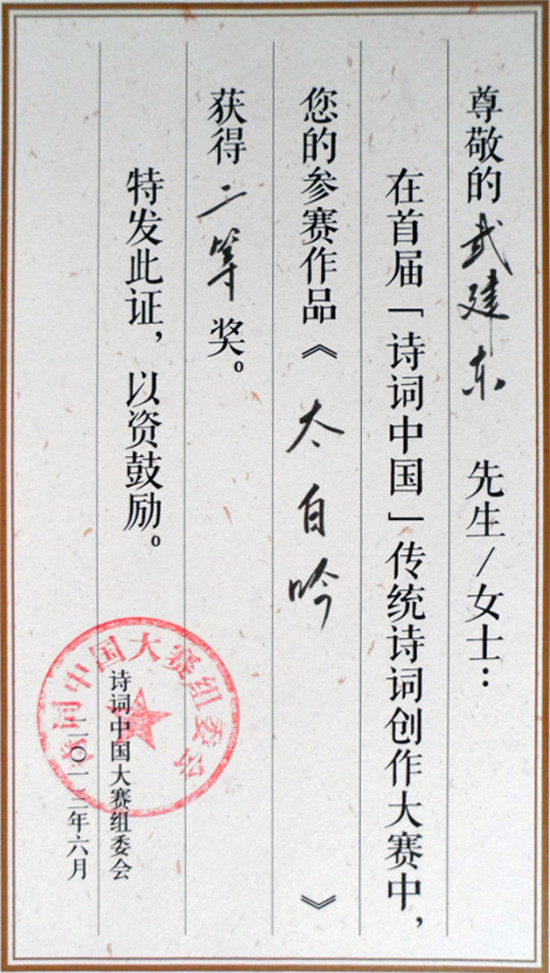 尊敬的武建东 先生/女士：
在首届「诗词中国」传统诗词创作大赛中，
您的参赛作品《太白吟》
获得二等奖。
特发此证，以资鼓励。
诗词中国大赛组委会
二〇一三年六月
诗词中国大赛组委会